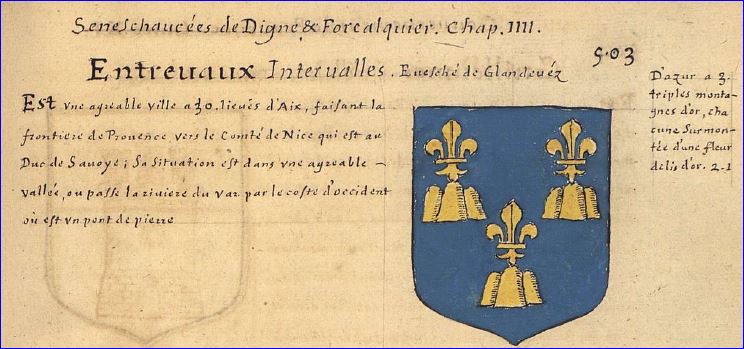 Seneschaucées de Digne & Forcalquier. Chap. IIII.
503
Entrevaux Intervalles. Evesché de Glandevéz
Est vne agreable ville a 30. lieuës d'Aix, faisant la
frontiere de Provence vers le Comté de Nice qui est au
Duc de Savoye; Sa situation est dans vne agreable
vallée, ou passe la riviere du var par le coste d'occident
où est vn pont de pierre
D'azur a 3.
triples monta-
gnes d'or, cha
cune Surmon-
tée d'une fleur
de lis d'or. 2-1